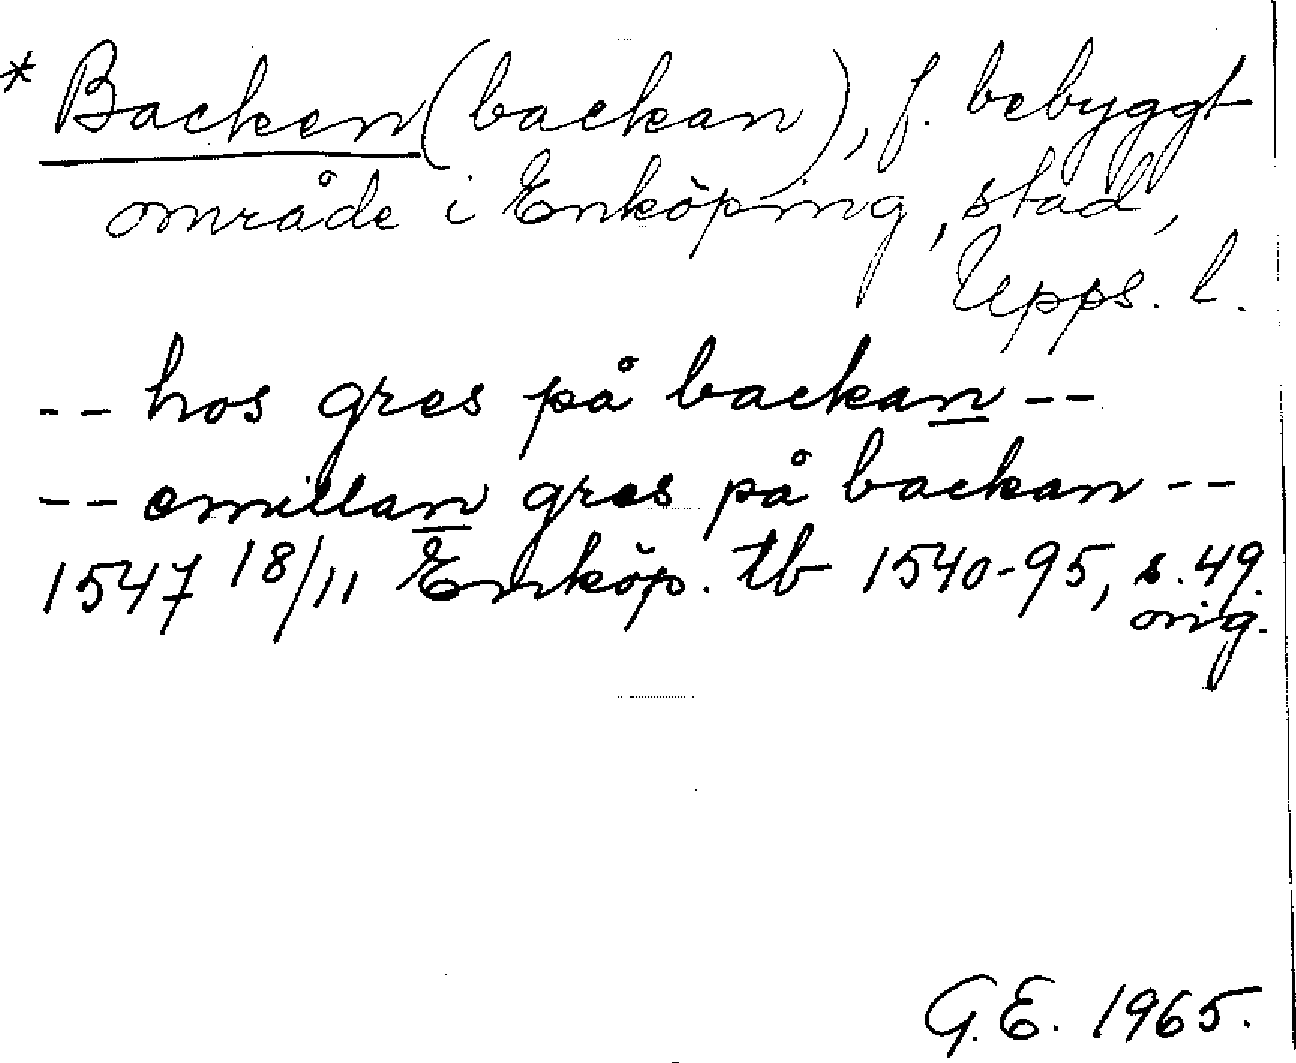 * Backen (backan), f. bebyggt
område i Enköping, stad,
Upps. l.
-- hos gres på backan --
-- emillan gres på backan --
1547 18/11 Enköp. tb 1540-95, s. 49.
orig.
G.E. 1965.